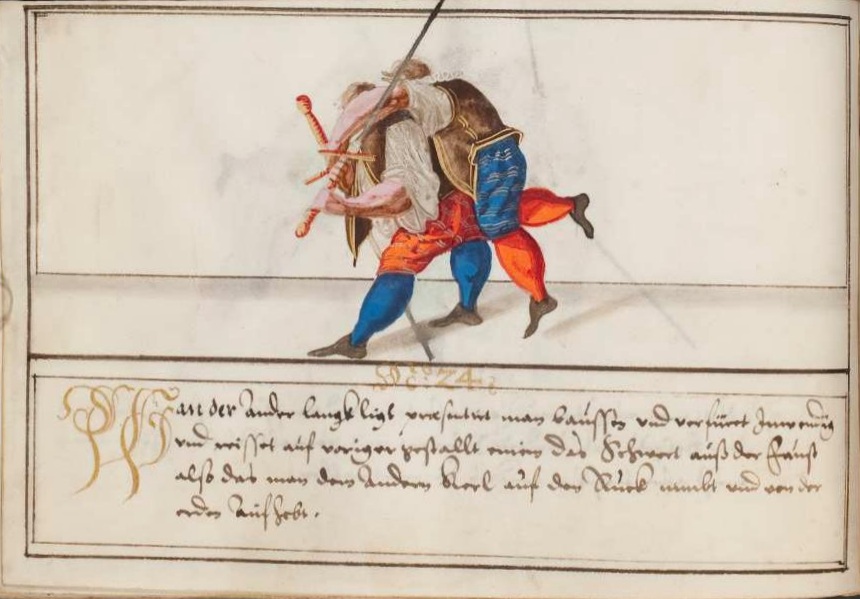 No: 24.
Wan der Ander langk ligt præsentirt man baussen und verfüert Inwendig
und reisset auf voriger gestallt einem das Schwert auß der Faust
also das man dem Andern Kerl auf den Ruck nimbt und von der
erden Aufhebt.